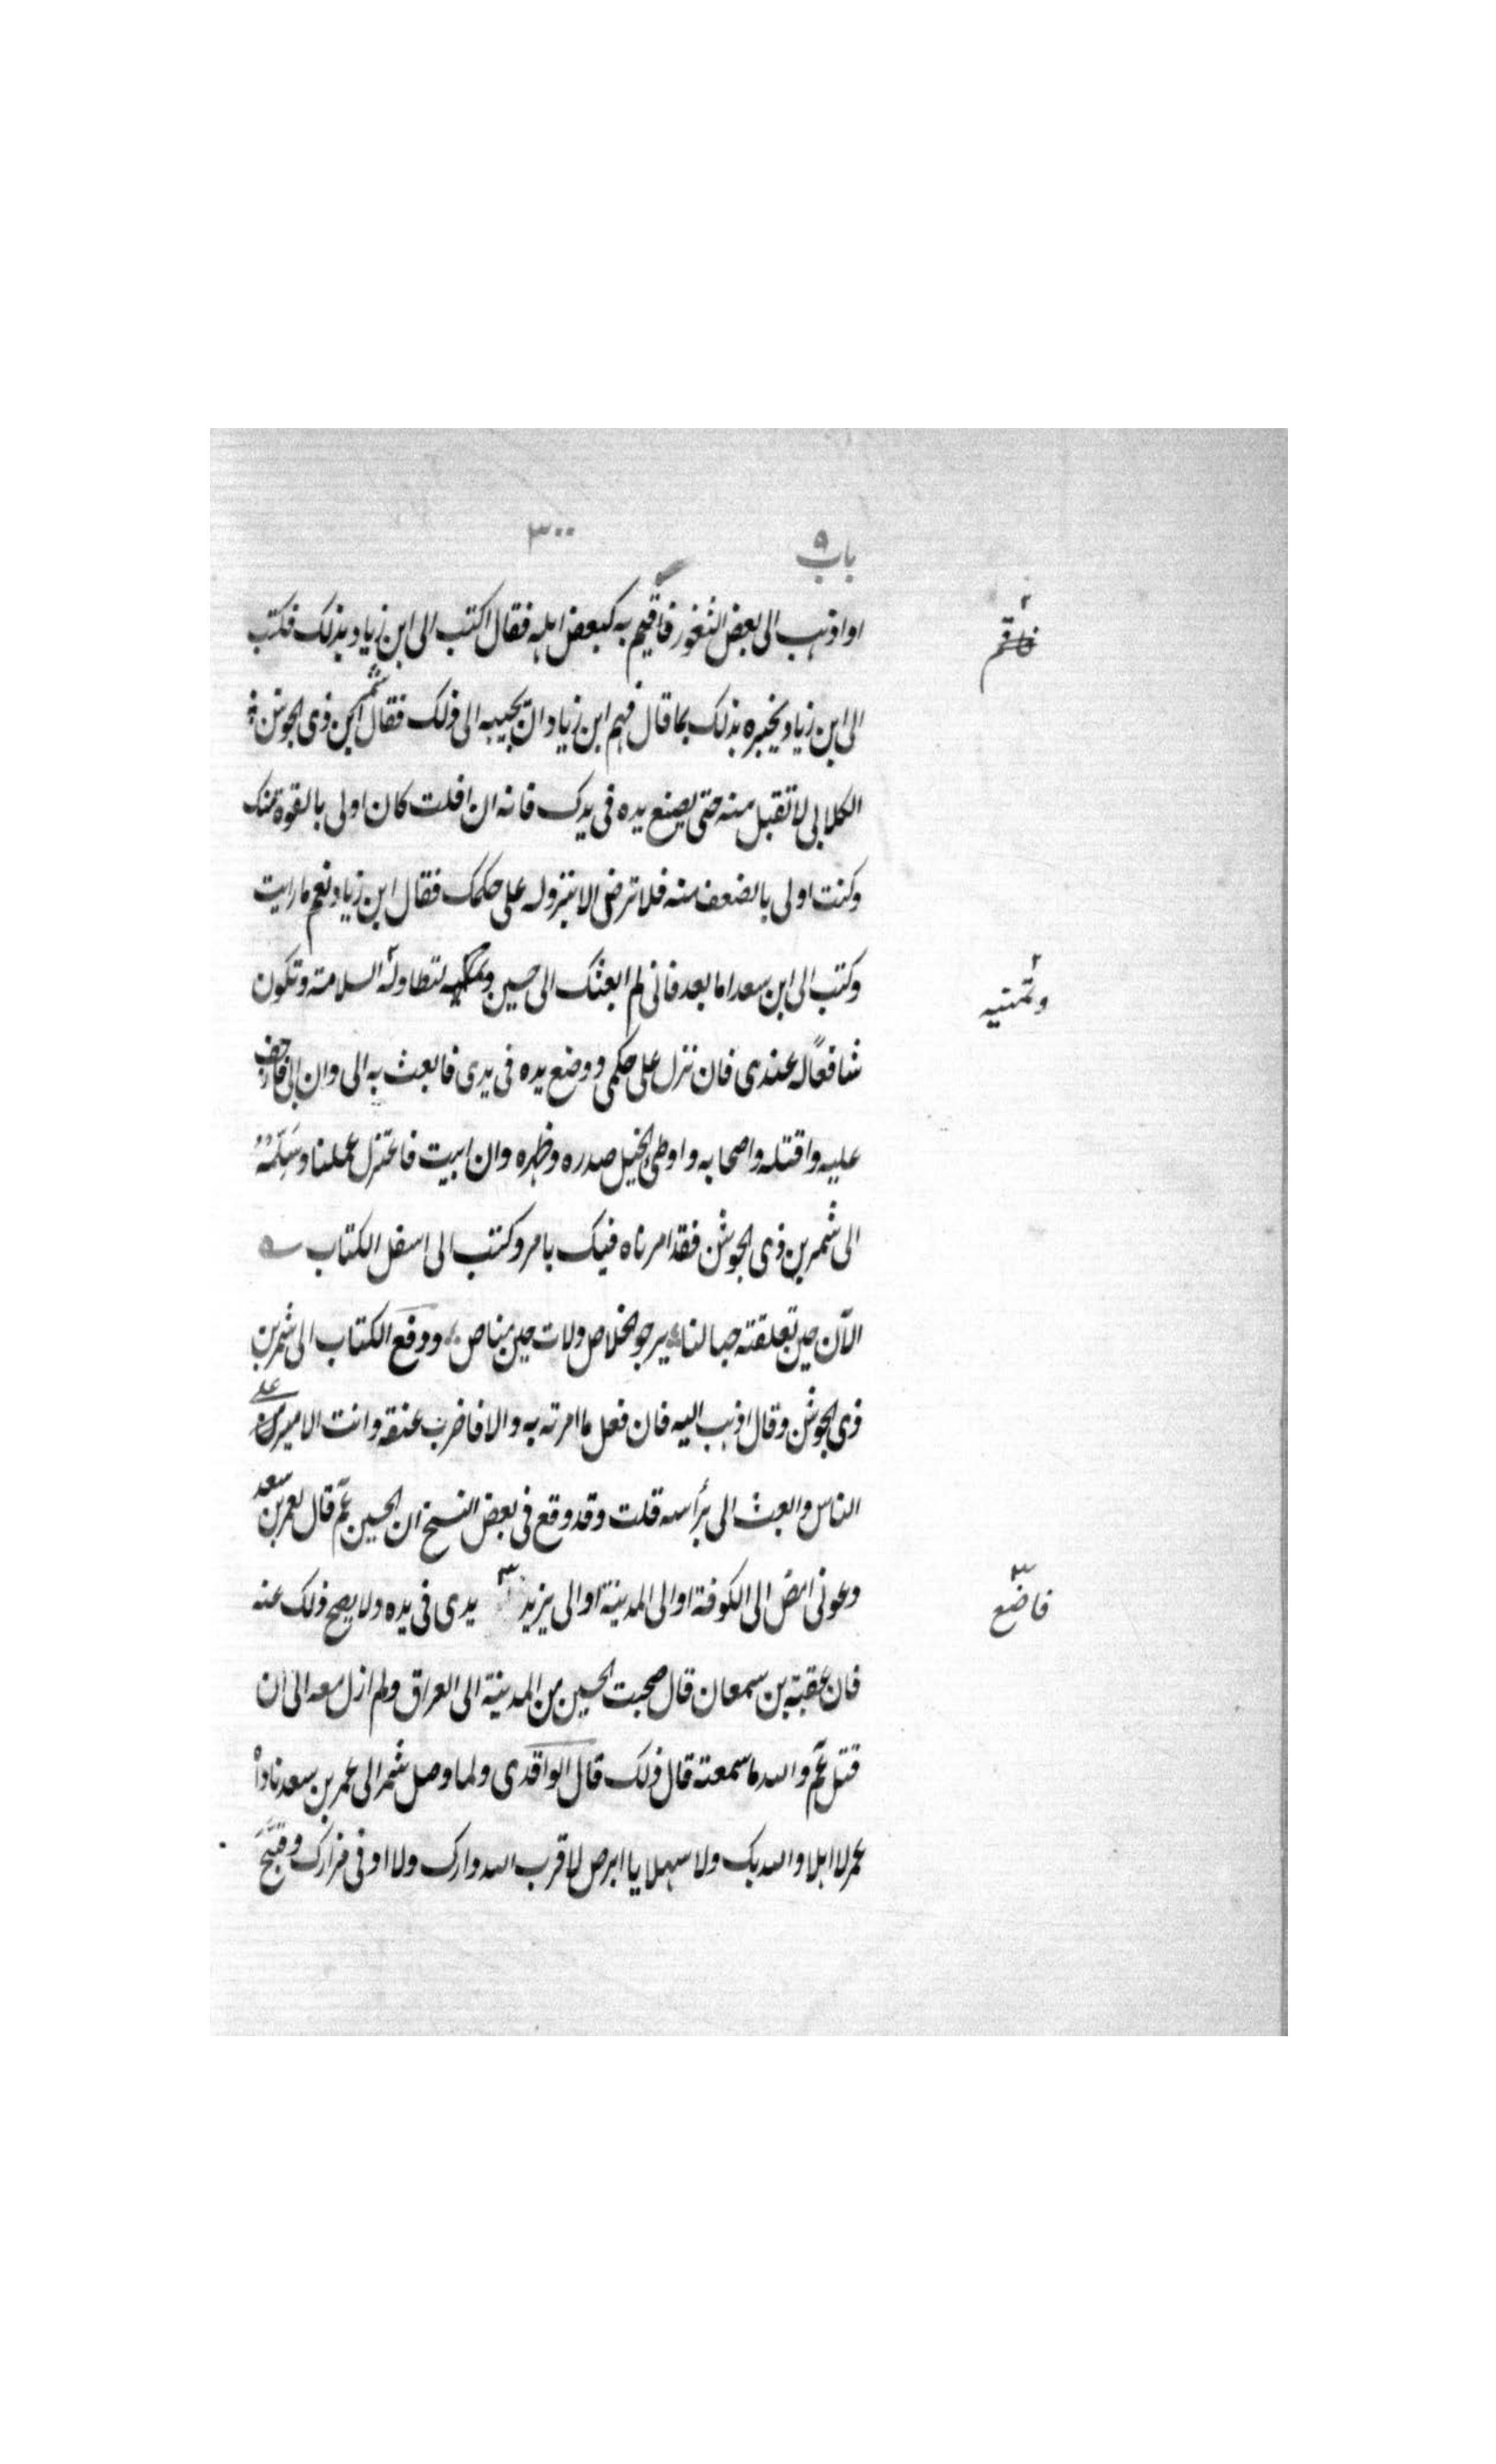 باب ٩
٣٠٠
او اذهب الى بعض الثغور فاقيم به كبعض اهله فقال اكتب الى ابن زياد بذلك فكتب
فاقم
الى ابن زياد يخبره بذلك بما قال فهم ابن زياد ان يجيبه الى ذلك فقال شمر بن ذى الجوشن
الكلابى لا تقبل منه حتى يضع يده فى يدك فانه ان افلت كان اولى بالقوة منك
وكنت اولى بالضعف منه فلا ترض الا بنزوله على حكمك فقال ابن زياد نعم ما رايت
وكتب الى ابن سعد اما بعد فانى لم ابعثك الى حسين لتطاوله السلامة وتكون
وتمنيه
شافعًا له عندى فان نزل على حكمى ووضع يده فى يدى فابعث به الى وان ابى فازحف
عليه واقتله واصحابه واوطئ الخيل صدره وظهره وان ابيت فاعتزل عملنا وسلمه
الى شمر بن ذى الجوشن فقد امرناه فيك بامر وكتب الى اسفل الكتاب
الآن حين تعلقته حبالنا يرجو الخلاص ولات حين مناص ودفع الكتاب الى شمر بن
ذى الجوشن وقال اذهب اليه فان فعل ما امرته به والا فاضرب عنقه وانت الامير على
الناس وابعث الى برأسه قلت وقد وقع فى بعض النسخ ان الحسين عم قال لعمر بن سعد
دعونى امض الى الكوفة او الى المدينة او الى يزيد ٣ يدى فى يده ولا يصح ذلك عنه
٣ فاضع
فان عقبة بن سمعان قال صحبت الحسين من المدينة الى العراق ولم ازل معه الى ان
قتل عم والله ما سمعته قال ذلك قال الواقدى ولما وصل شمر الى عمر بن سعد ناداه
عمر لا اهلا والله بك ولا سهلا يا ابرص لا قرب الله دارك ولا ادنى مزارك وقبح